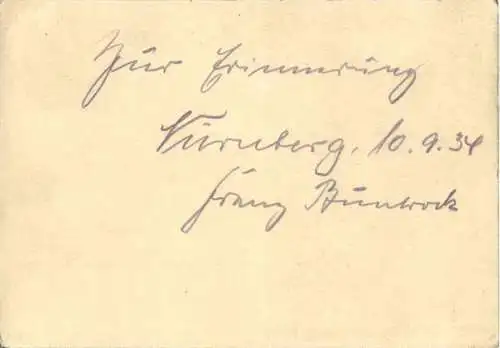 Zur Erinnerung
Nürnberg, 10.9.34
Franz Buntrock